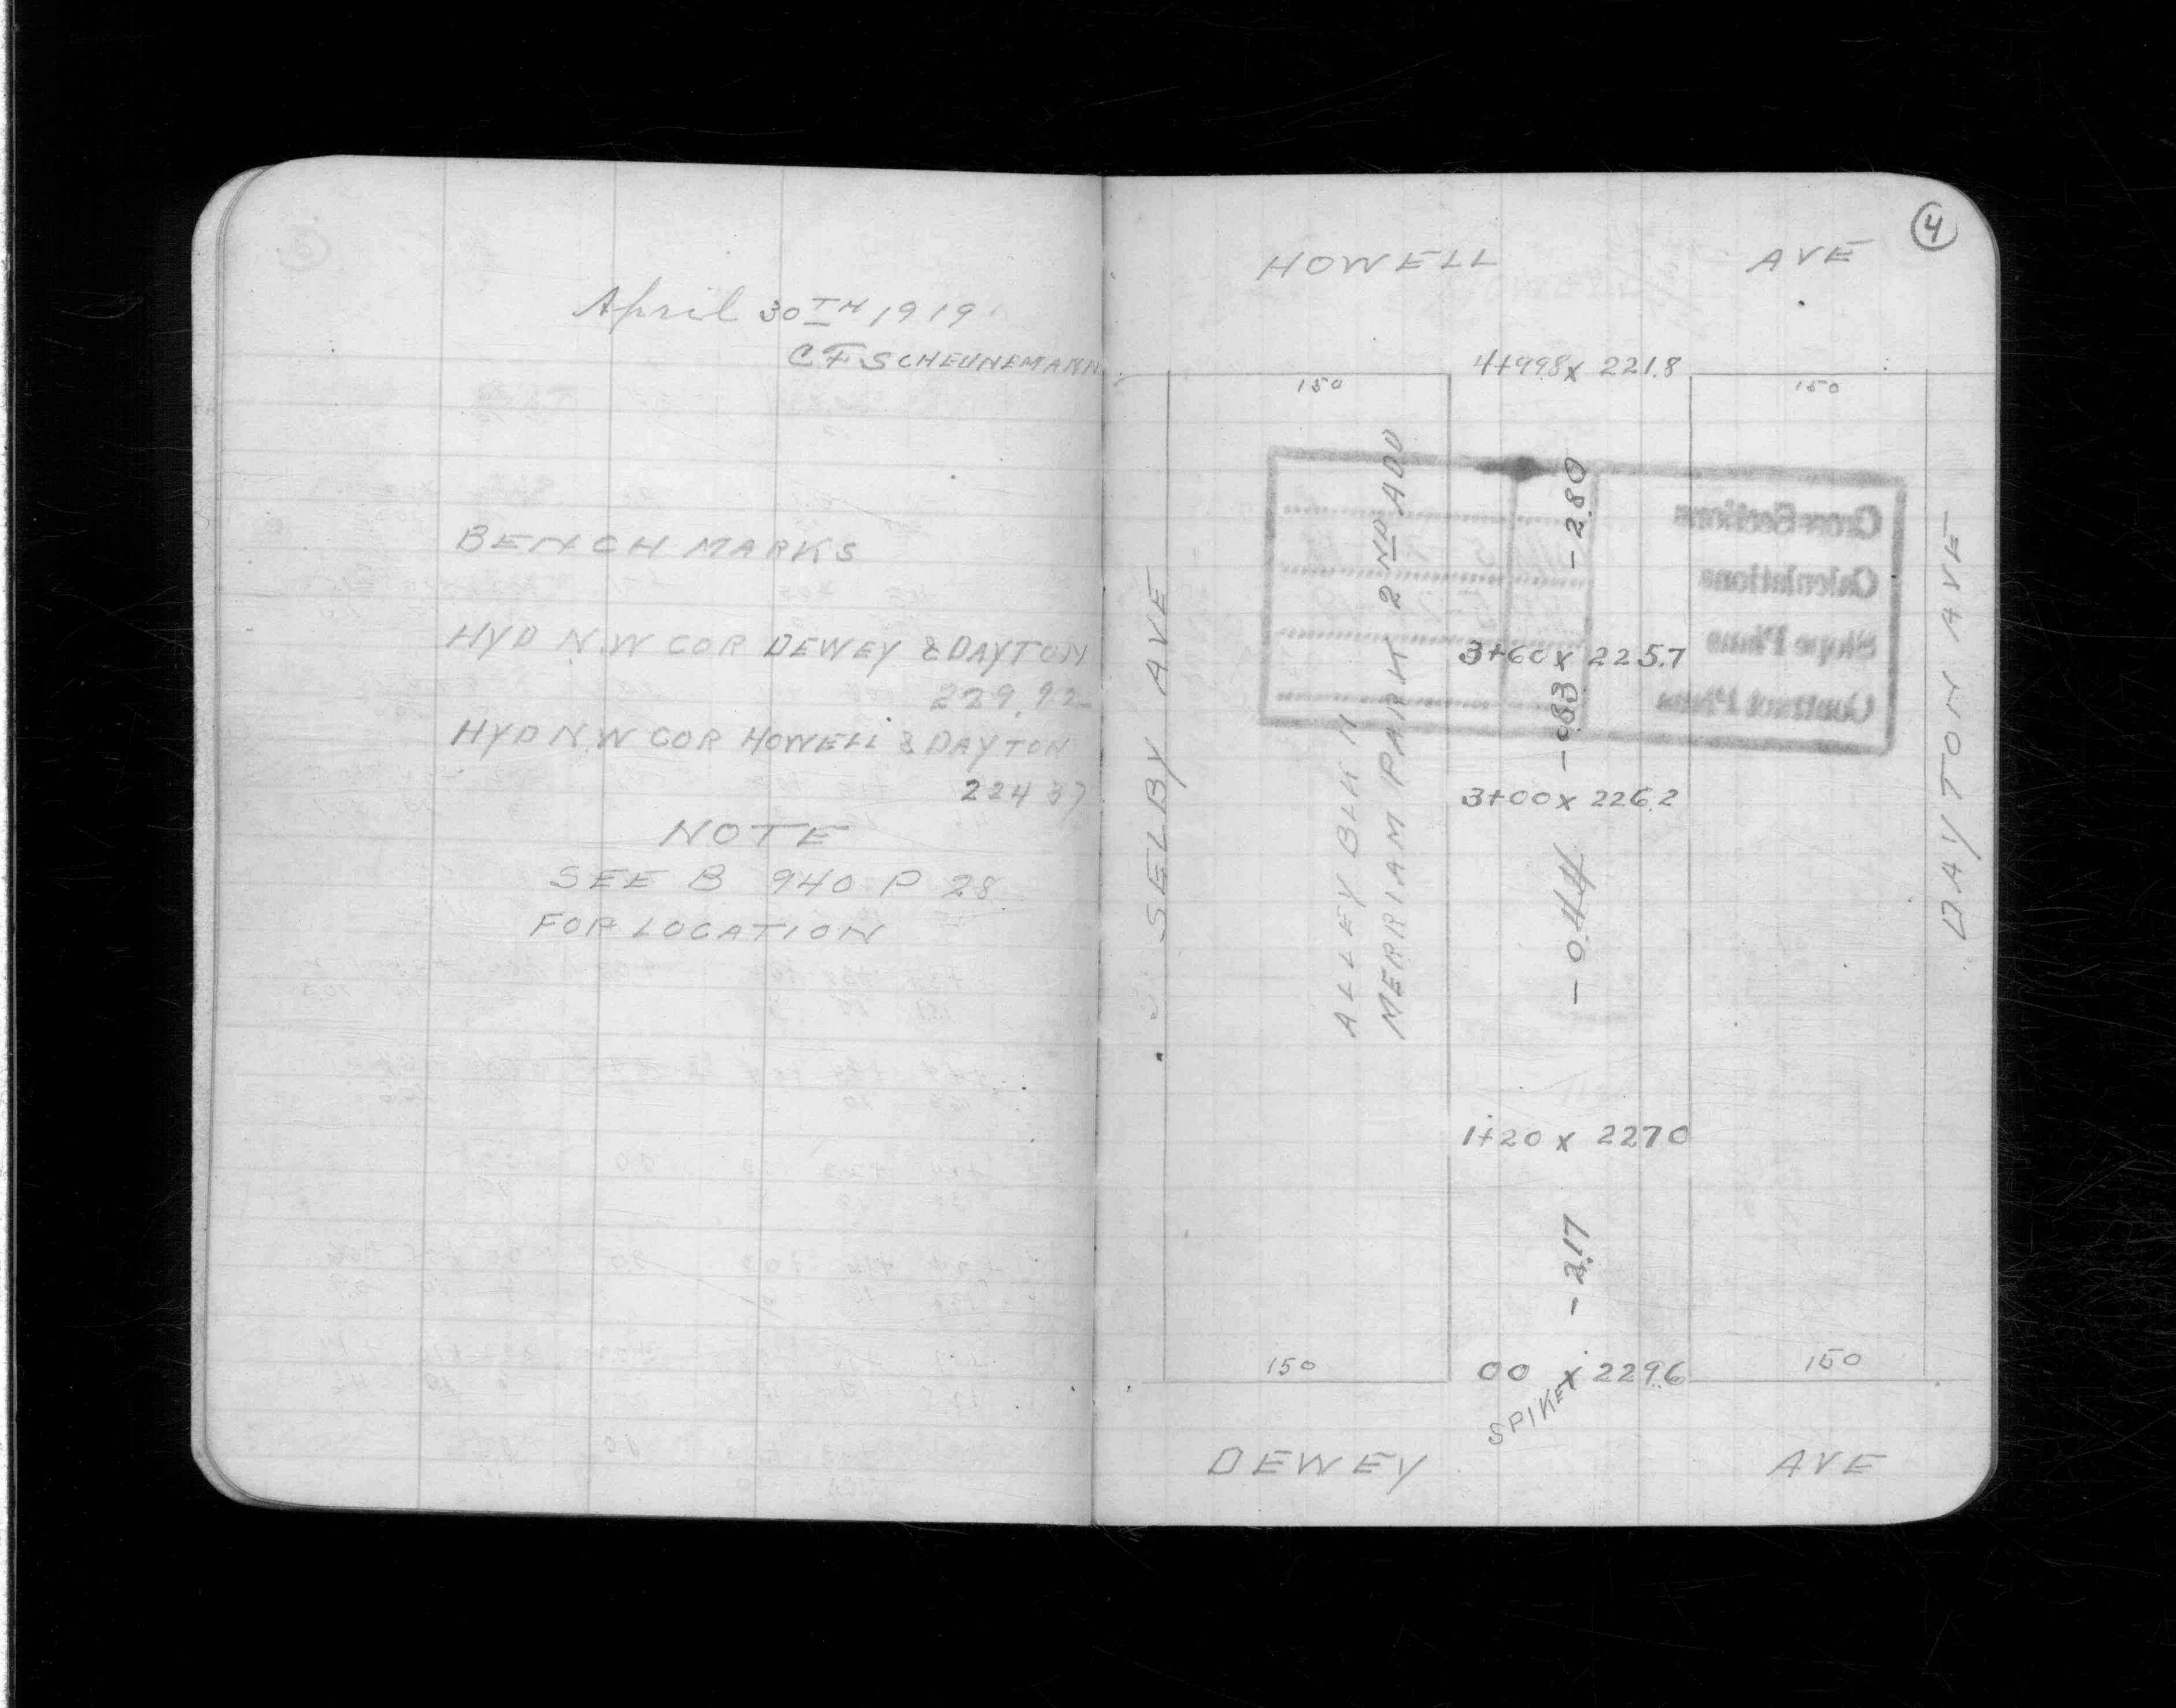 April 30TH 1919
C F SCHEUNEMANN
BENCH MARKS
HYD N.W COR DEWEY & DAYTON
229.92
HYD N.W COR HOWELL & DAYTON
224 37
NOTE
SEE B 940 P 28
FOR LOCATION
4
HOWELL AVE
4+99.8 x 221.8
150 150
- 2.80
Cross Sections
Calculations
Slope Plans
Contract Plans
3+60 x 225.7
- 0.83
3+00 x 226.2
- 0.44
SELBY AVE
ALLEY BLK 11
MERRIAM PARK 2ND ADD
DAYTON AVE
1+20 x 227 0
- 2.17
150 00 x 229.6 150
SPIKE
DEWEY AVE